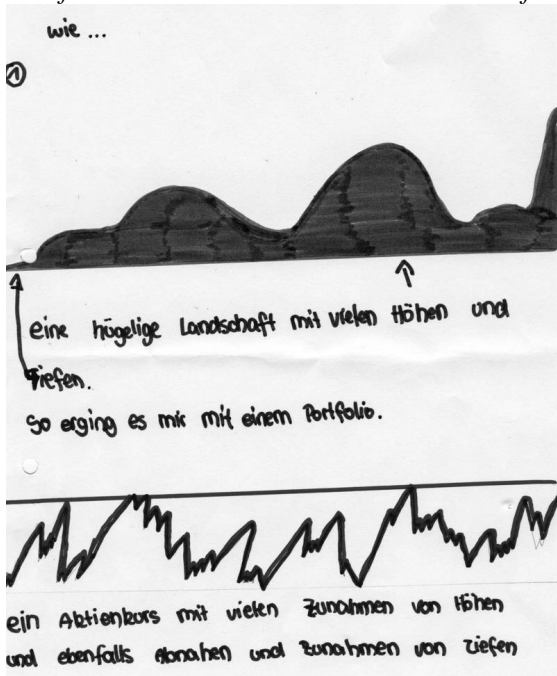 wie ...
①
eine hügelige Landschaft mit vielen Höhen und
Tiefen.
So erging es mir mit einem Portfolio.
ein Aktienkurs mit vielen Zunahmen von Höhen
und ebenfalls Abnahen und Zunahmen von Tiefen